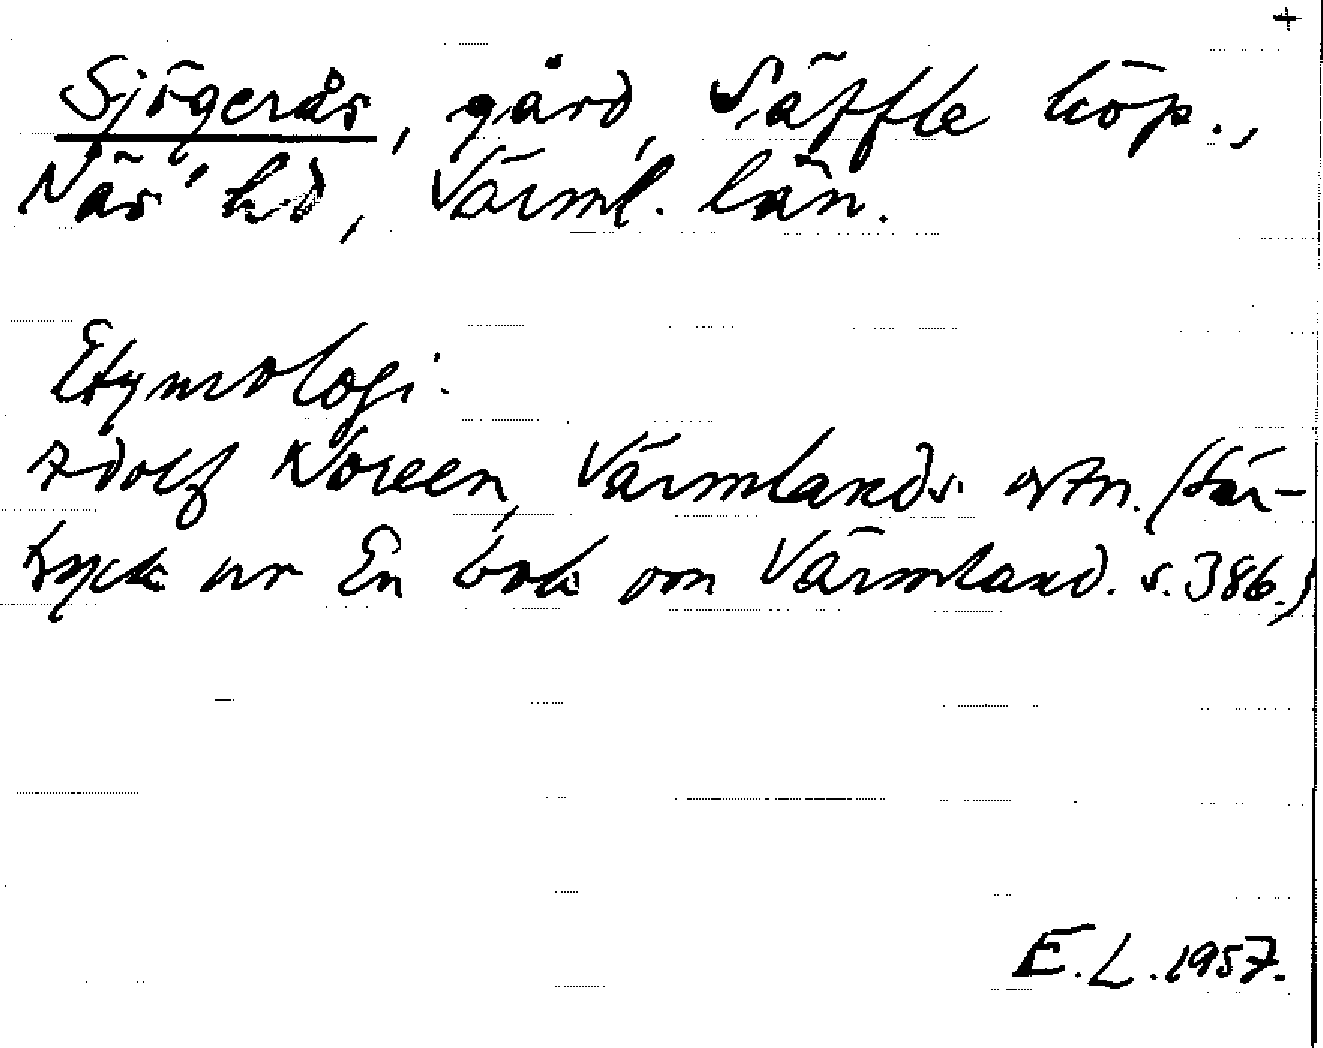 +
Sjögerås, gård, Säffle köp.,
Näs' hd, Värml. län.
Etymologi.
Adolf Noreen, Värmlands ortn. (sär-
tryck ur En bok om Värmland. s. 386.)
E. L. 1957.